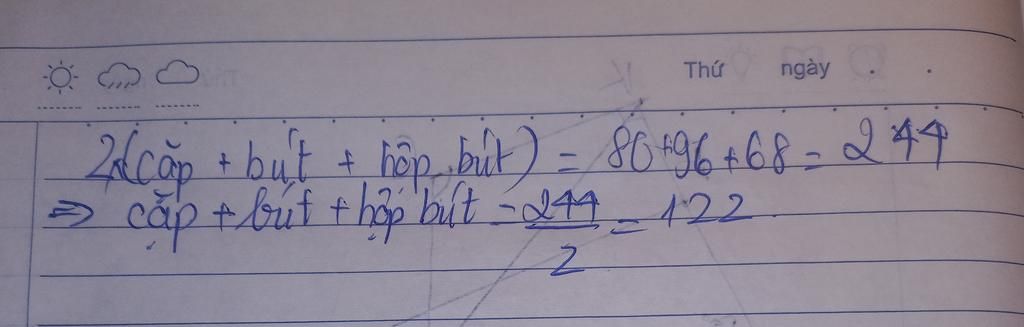 Thứ ngày . .
2x(cặp + bút + hộp bút) = 80+96+68 = 244
=> cặp + bút + hộp bút = 244/2 = 122